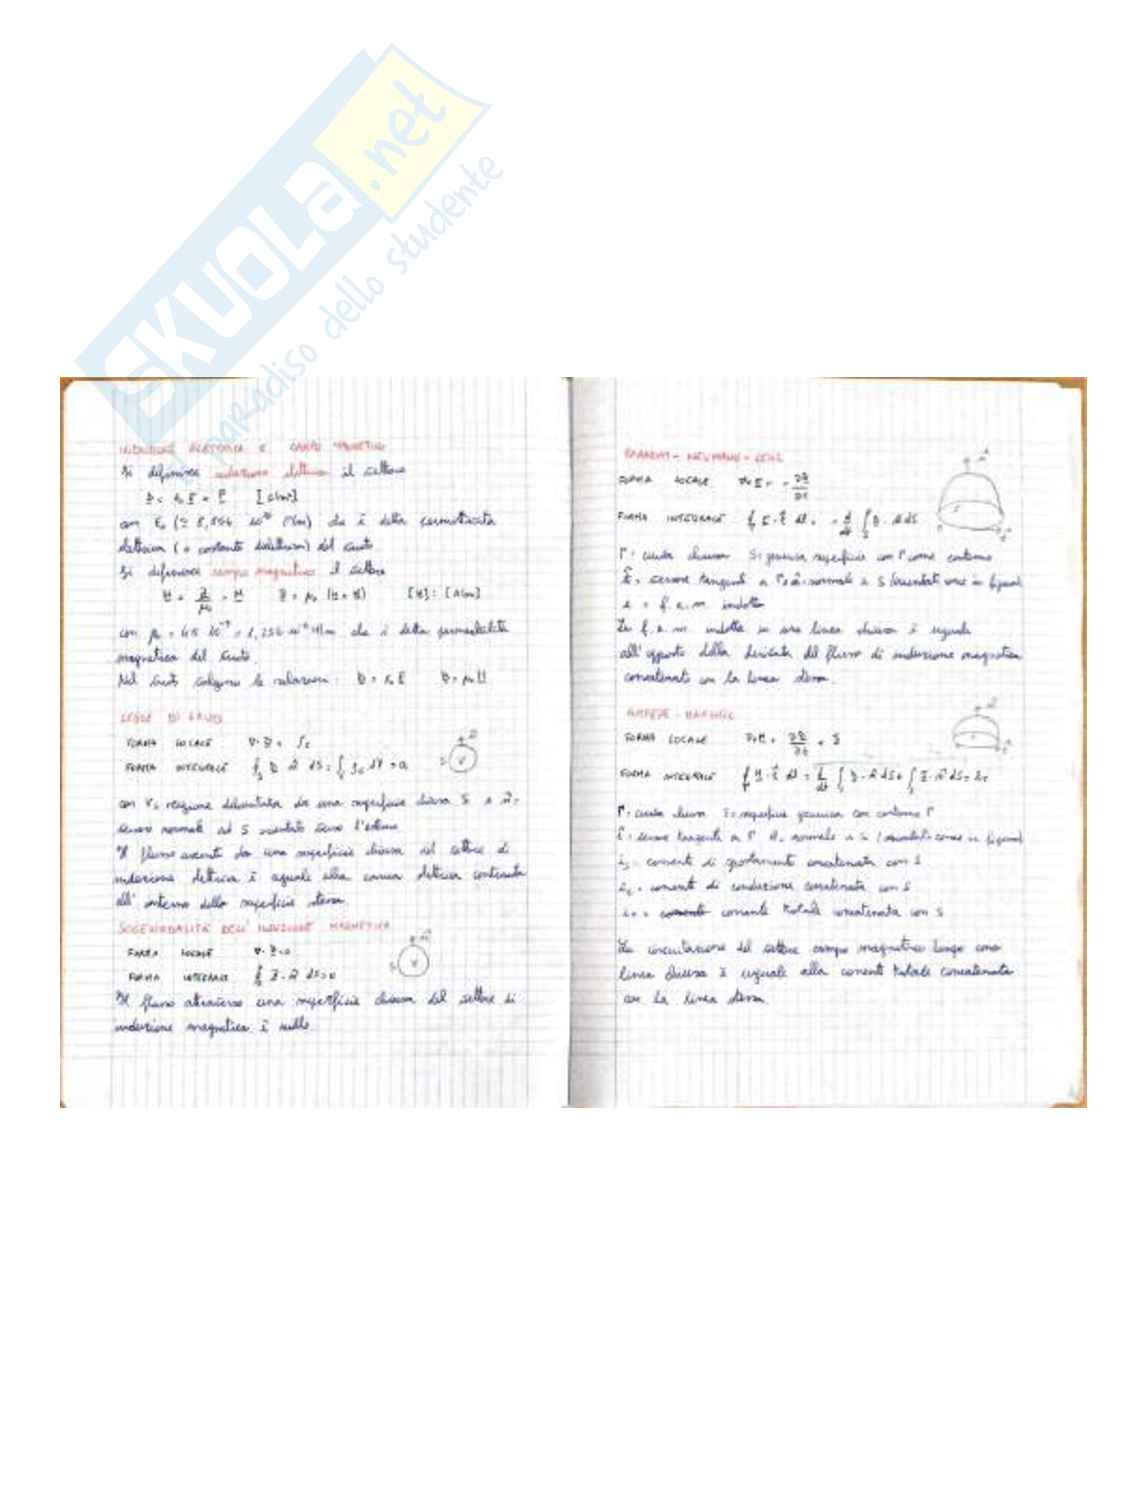 SKUOLA.net
paradiso dello studente
INDUZIONE ELETTRICA E CAMPO MAGNETICO
Si definisce induzione elettrica il vettore
D = ε₀ E + P [C/m²]
con ε₀ (≃ 8,854 10⁻¹² F/m) che è detta permettività
elettrica (o costante dielettrica) del vuoto
Si definisce campo magnetico il vettore
H = B/μ₀ - M B = μ₀ (H + M) [H] = [A/m]
con μ₀ = 4π 10⁻⁷ = 1,256 10⁻⁶ H/m che è detta permeabilità
magnetica del vuoto.
Nel vuoto valgono le relazioni: D = ε₀ E B = μ₀ H
LEGGE DI GAUSS
FORMA LOCALE ∇·D =
FORMA INTEGRALE ∮ D · n dS = ∫ dV = Q
con V = regione delimitata da una superficie chiusa S e n =
versore normale ad S orientato verso l'esterno
Il flusso uscente da una superficie chiusa del vettore di
induzione elettrica è uguale alla carica elettrica contenuta
all'interno della superficie stessa
SOLENOIDALITÀ DELL'INDUZIONE MAGNETICA
FORMA LOCALE ∇·B = 0
FORMA INTEGRALE ∮ B · n dS = 0
Il flusso attraverso una superficie chiusa del vettore di
induzione magnetica è nullo
FARADAY - NEUMANN - LENZ
FORMA LOCALE ∇×E = - ∂B/∂t
FORMA INTEGRALE ∮ E · t dl = - d/dt ∫ B · n dS
Γ = curva chiusa S = generica superficie con Γ come contorno
t = versore tangente a Γ e n = normale a S (orientati come in figura)
e = f.e.m. indotta
La f.e.m. indotta in una linea chiusa è uguale
all'opposto della derivata del flusso di induzione magnetica
concatenato con la linea stessa.
AMPERE - MAXWELL
FORMA LOCALE ∇×H = ∂D/∂t + J
FORMA INTEGRALE ∮ H · t dl = d/dt ∫ D · n dS + ∫ J · n dS =
Γ = curva chiusa S = superficie generica con contorno Γ
t = versore tangente a Γ n = normale a (orientati come in figura)
corrente di spostamento concatenata con S
corrente di conduzione concatenata con S
corrente totale concatenata con S
La circuitazione del vettore campo magnetico lungo una
linea chiusa è uguale alla corrente totale concatenata
con la linea stessa